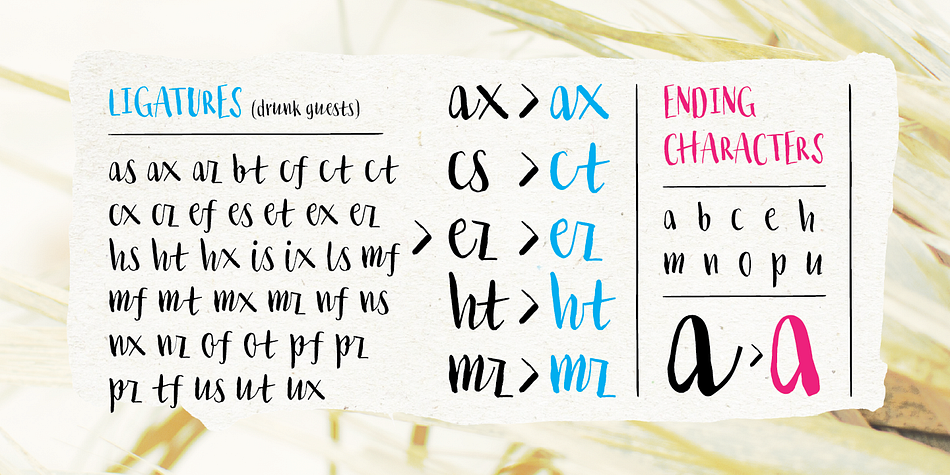 LIGATURES (drunk guests)
as ax az bt cf ct ct
cx cz ef es et ex ez
hs ht hx is ix ls mf
mf mt mx mz nf ns
nx nz of ot pf pz
pz tf us ut ux
>
ax > ax
cs > ct
ez > ez
ht > ht
mz > mz
ENDING
CHARACTERS
a b c e h
m n o p u
a > a